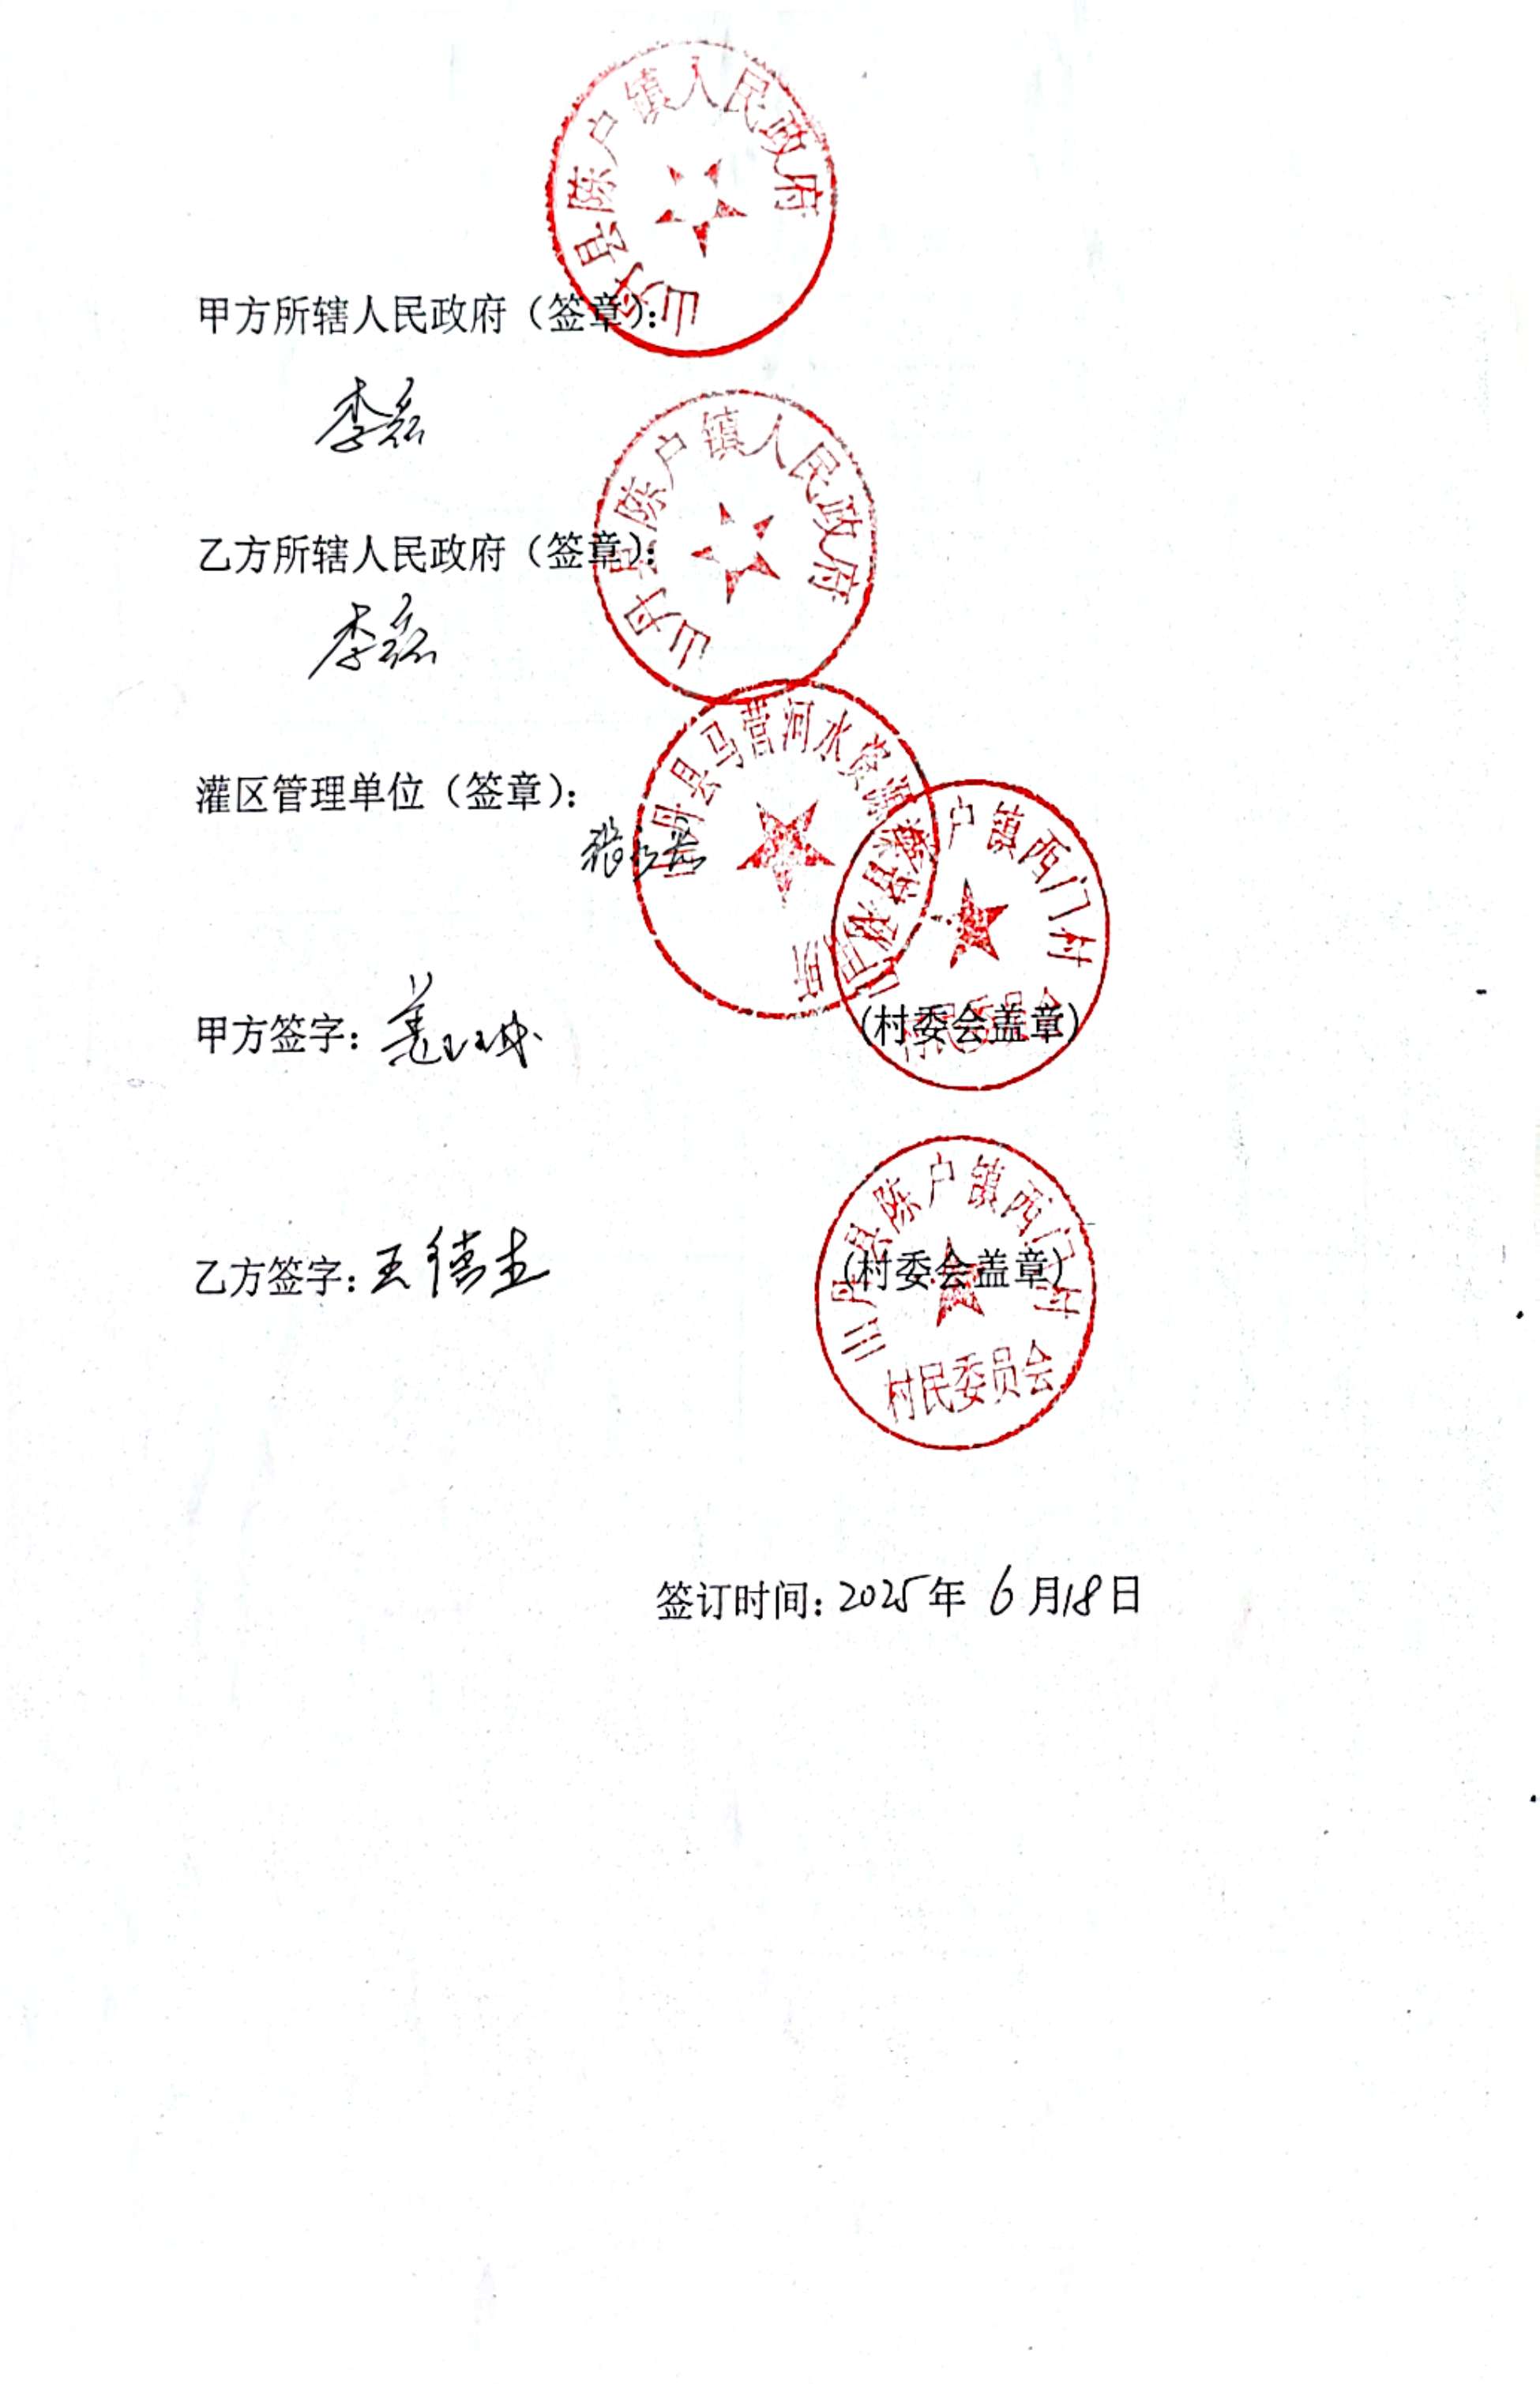 山丹县陈户镇人民政府
甲方所辖人民政府（签章）：
李磊
山丹县陈户镇人民政府
乙方所辖人民政府（签章）：
李磊
山丹县马营河水资源
灌区管理单位（签章）：
户镇西门村
甲方签字：
(村委会盖章)
山丹县陈户镇西门村
乙方签字：王德圭
(村委会盖章)
村民委员会
签订时间：2025年 6月18日